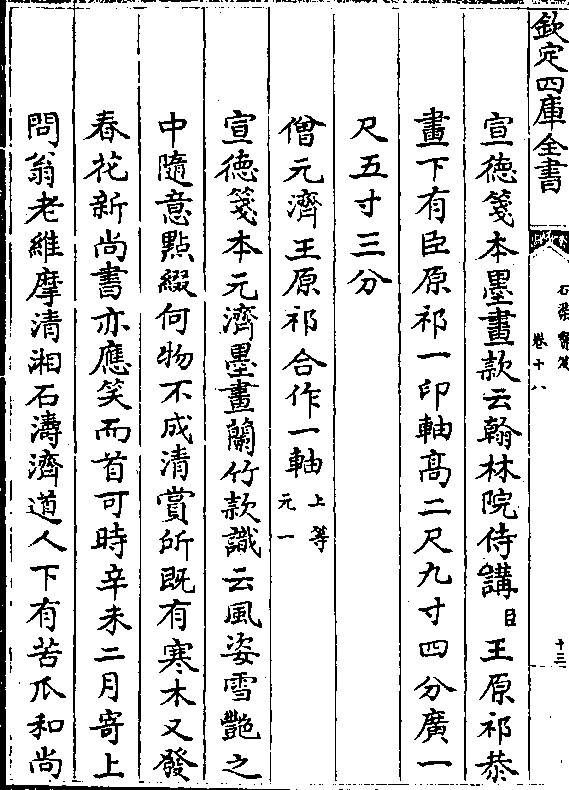 欽定四庫全書
石渠寶笈
卷十八
十三
宣德箋本墨畫款云翰林院侍講臣王原祁恭
畫下有臣原祁一印軸高二尺九寸四分廣一
尺五寸三分
僧元濟王原祁合作一軸上等元一
宣德箋本元濟墨畫蘭竹款識云風姿雪豔之
中隨意點綴何物不成清賞所既有寒木又發
春花新尚書亦應笑而首可時辛未二月寄上
問翁老維摩清湘石濤濟道人下有苦瓜和尚